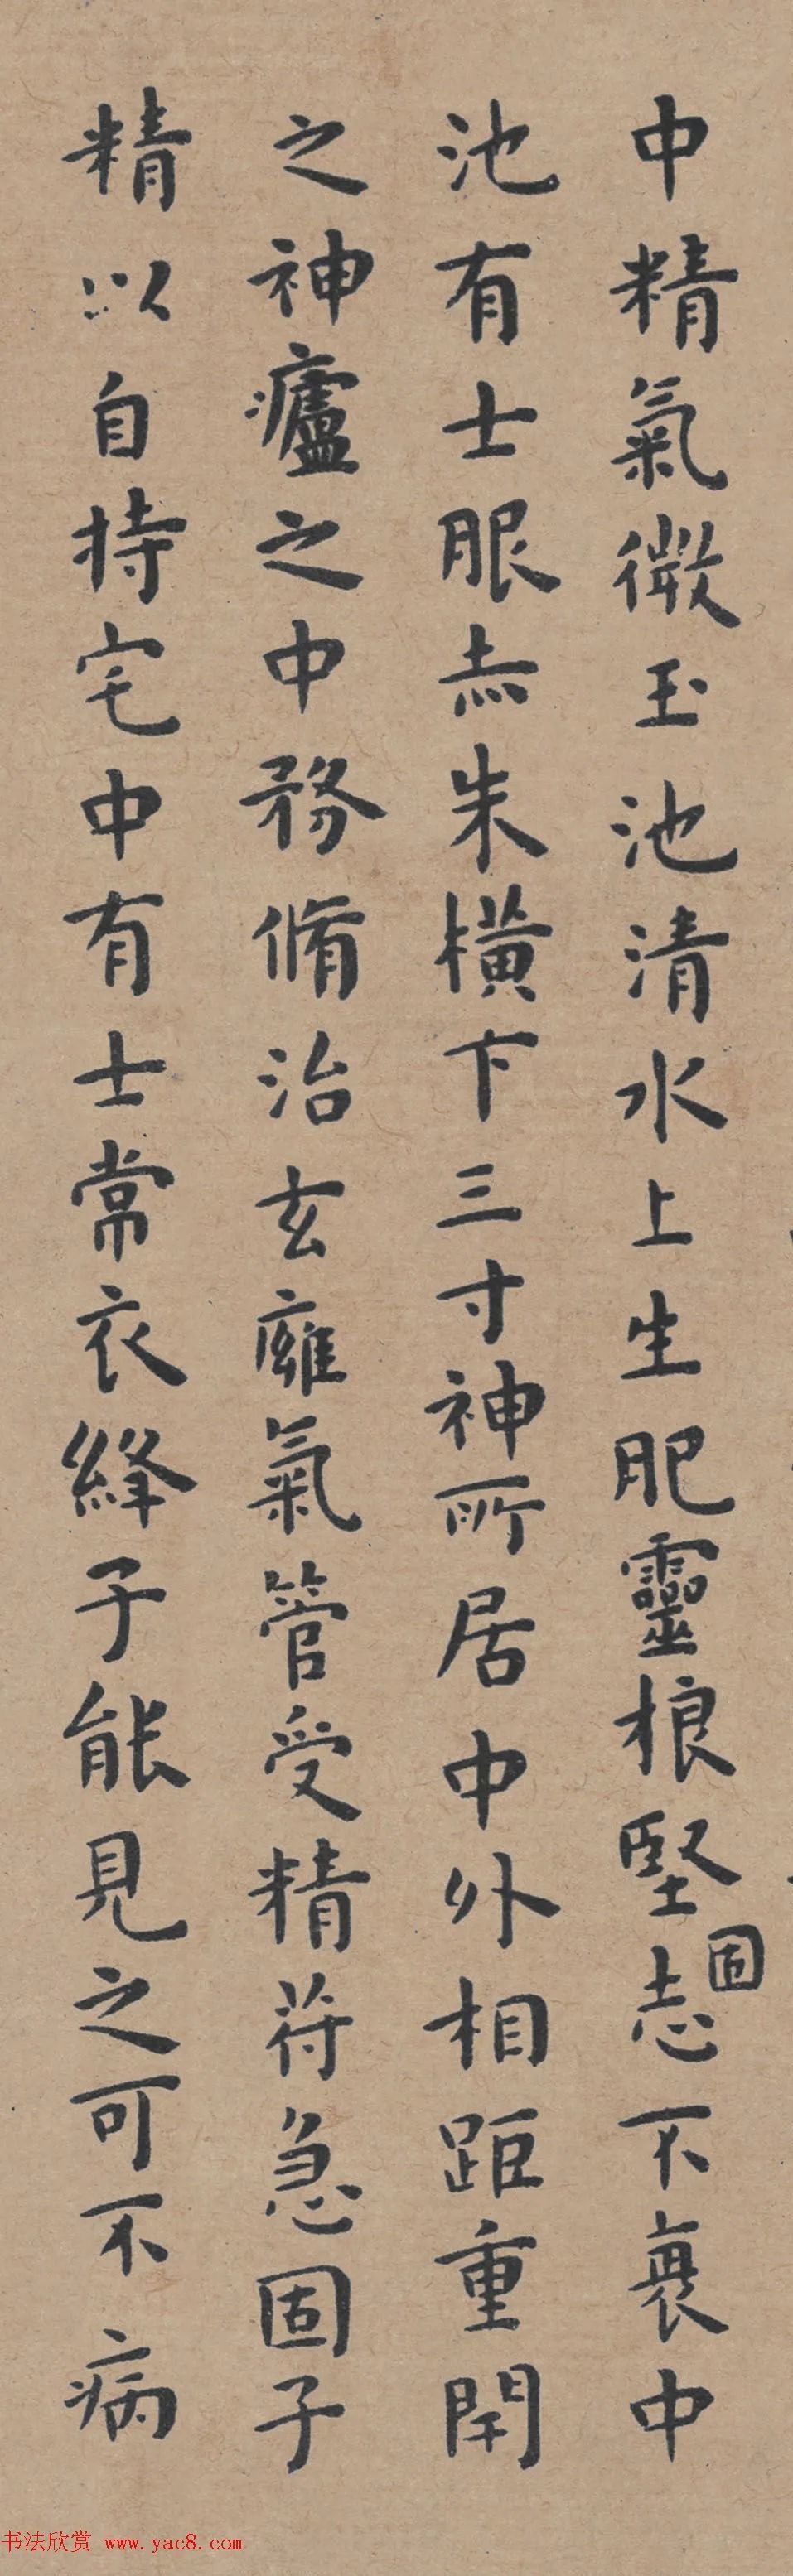 中精氣微玉池清水上生肥靈根堅固志不衰中
池有士服赤朱橫下三寸神所居中外相距重閇
之神廬之中務脩治玄廱氣管受精苻急固子
精以自持宅中有士常衣絳子能見之可不病
书法欣赏 www.yac8.com